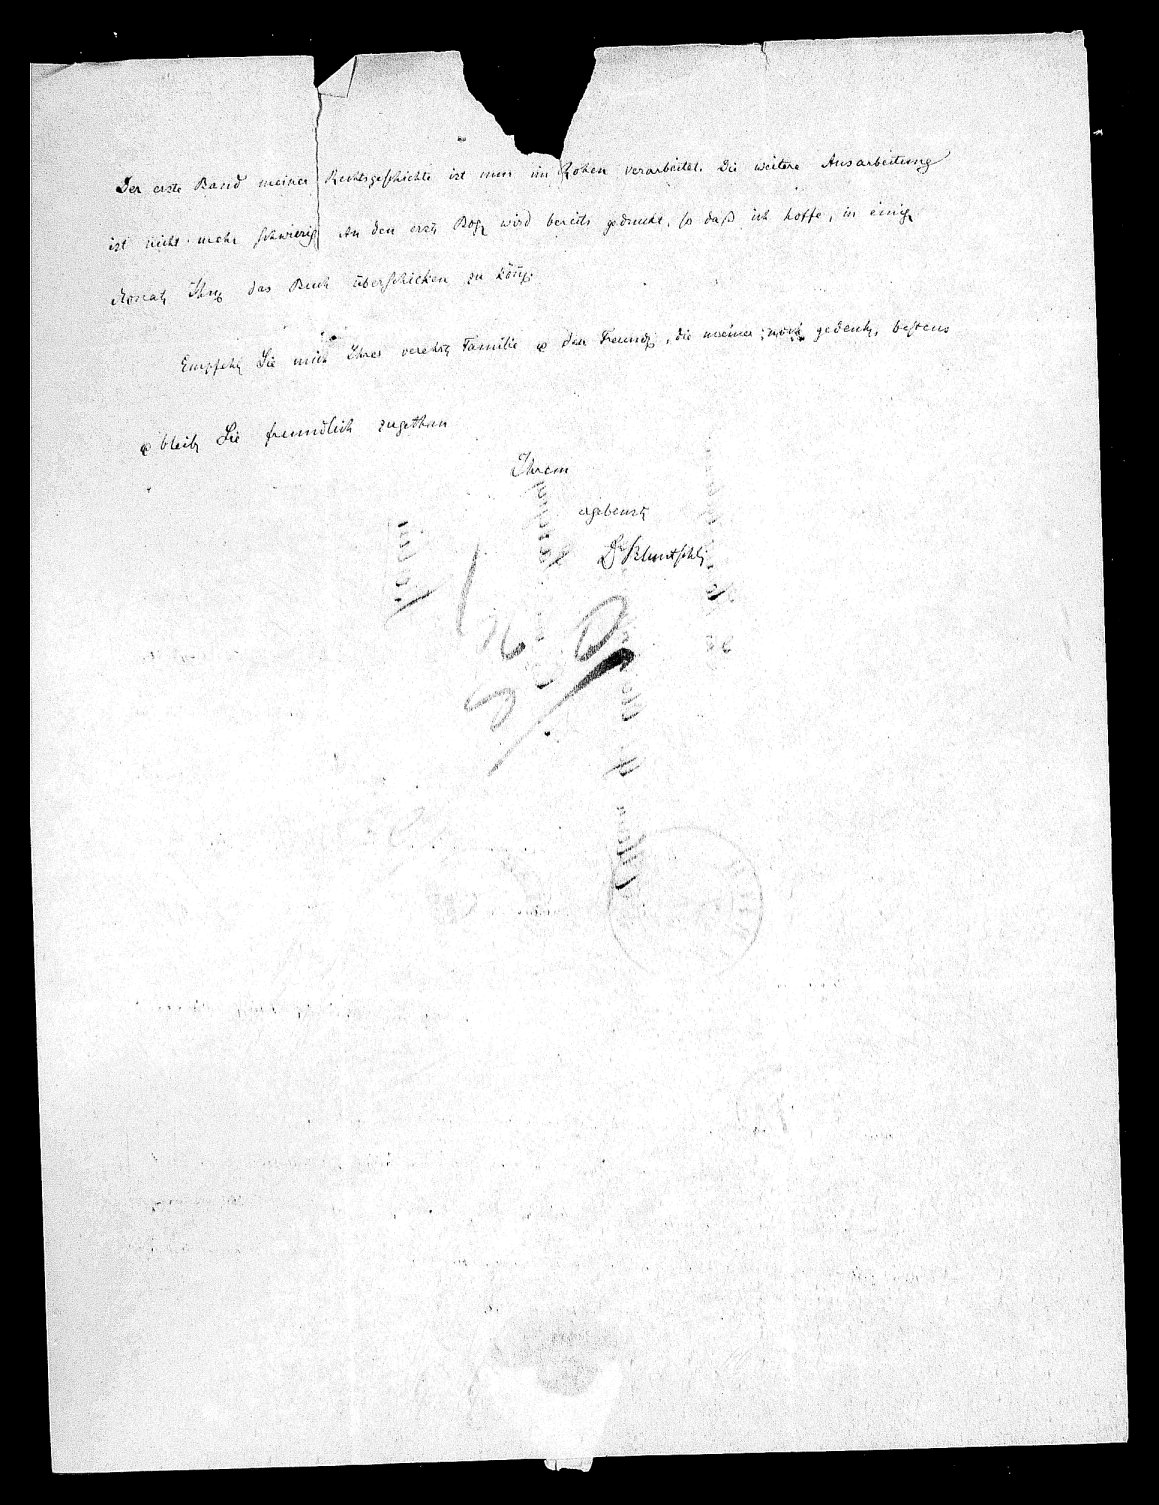 Der erste Band meiner Rechtsgeschichte ist nun im Rohen verarbeitet. Die weitere Ausarbeitung
ist nicht mehr schwierig. An den ersten Bogen wird bereits gedruckt, so daß ich hoffe, in einigen
Monaten Ihnen das Buch überschicken zu können.
Empfehlen Sie mich Ihrer verehrten Familie & den Freunden, die meiner noch gedenken, bestens
& bleiben Sie freundlich zugethan
Ihrem
ergebensten
Dr Bluntschli